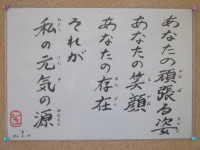 あなたの頑張る姿
あなたの笑顔
あなたの存在
それが
私の元気の源